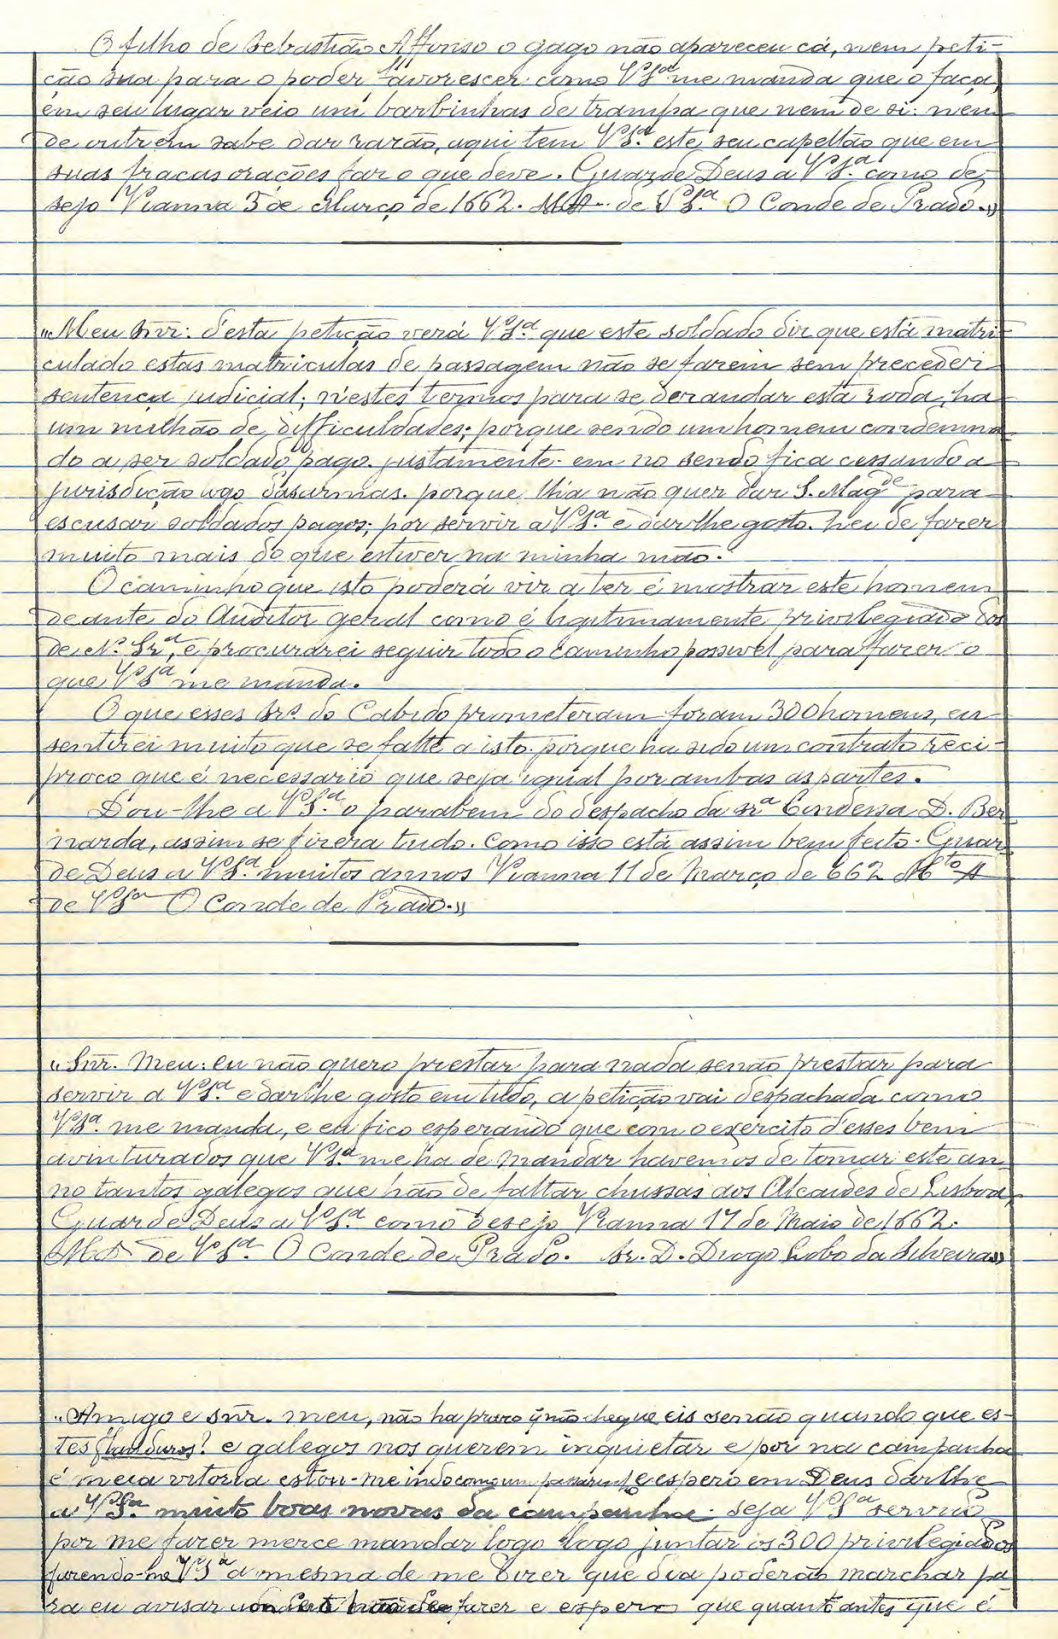 O filho de Sebastião Affonso o gago não apareceu cá, nem peti-
ção sua para o poder favorescer como VSª me manda que o faça,
em seu lugar veio um barbinhas de trampa que nem de si: nem
de outrem sabe dar razão, aqui tem VSª este seu capellão que em
suas fracas orações faz o que deve. Guarde Deus a VSª como de-
sejo Vianna 5 de Março de 1662. de VSª O Conde de Prado.»
"Meu Snr: desta petição verá VSª que este soldado diz que está matri-
culado estas matriculas de passagem não se fazem sem preceder
sentença judicial; n'estes termos para se desandar esta roda, ha
um milhão de difficuldades; porque sendo um homem condemna-
do a ser soldado pago. justamente. em no sendo fica cessando a
jurisdicção logo dasarmas. porque lhia não quer dar S. Magde para
escusar soldados pagos; por servir a VSª e dar lhe gosto. hei de fazer
muito mais do que estiver na minha mão.
O caminho que isto poderá vir a ter é mostrar este homem
deante do Auditor geral como é legitimamente privilegiado dos
de Nª Srª, e procurarei seguir todo o caminho possivel para fazer o
que VSª me manda.
O que esses Srs do Cabido prometeram foram 300 homens, eu
sentirei muito que se falte a isto. porque ha sido um contrato reci-
proco que é necessario que seja igual por ambas as partes.
Dou-lhe a VSª o parabem do despacho da Srª Condessa D. Ber-
narda, assim se fizera tudo. como isso está assim bem feito. Guar-
de Deus a VSª muitos annos Vianna 11 de Março de 662 Mto A
de VSª O Conde de Prado.»
"Snr. Meu: eu não quero prestar para nada senão prestar para
servir a VSª e darlhe gosto em tudo, a petição vai despachada como
VSª me manda, e eu fico esperando que com o exercito d'esses bem
avinturados que VSª me ha de mandar havemos de tomar este an-
no tantos galegos que hão de faltar chussas aos Alcaides de Lisboa,
Guarde Deus a VSª como desejo Vianna 17 de Maio de 1662.
de VSª O Conde de Prado. Sr. D. Diogo Lobo da Silveira»
"Amigo e snr. meu, não ha prazo q̃ não chegue eis senão quando que es-
tes flanduros? e galegos nos querem inquietar e por na campanha
é meia vitoria estou-me indo com um e espero em Deus darlhe
a VSª muito boas novas da campanha. seja VSª servido
por me fazer merce mandar logo logo juntar os 300 privilegiados
fazendo-me VSª a mesma de me dizer que dia poderão marchar pa-
ra eu avisar fazer e espero que quanto antes que é